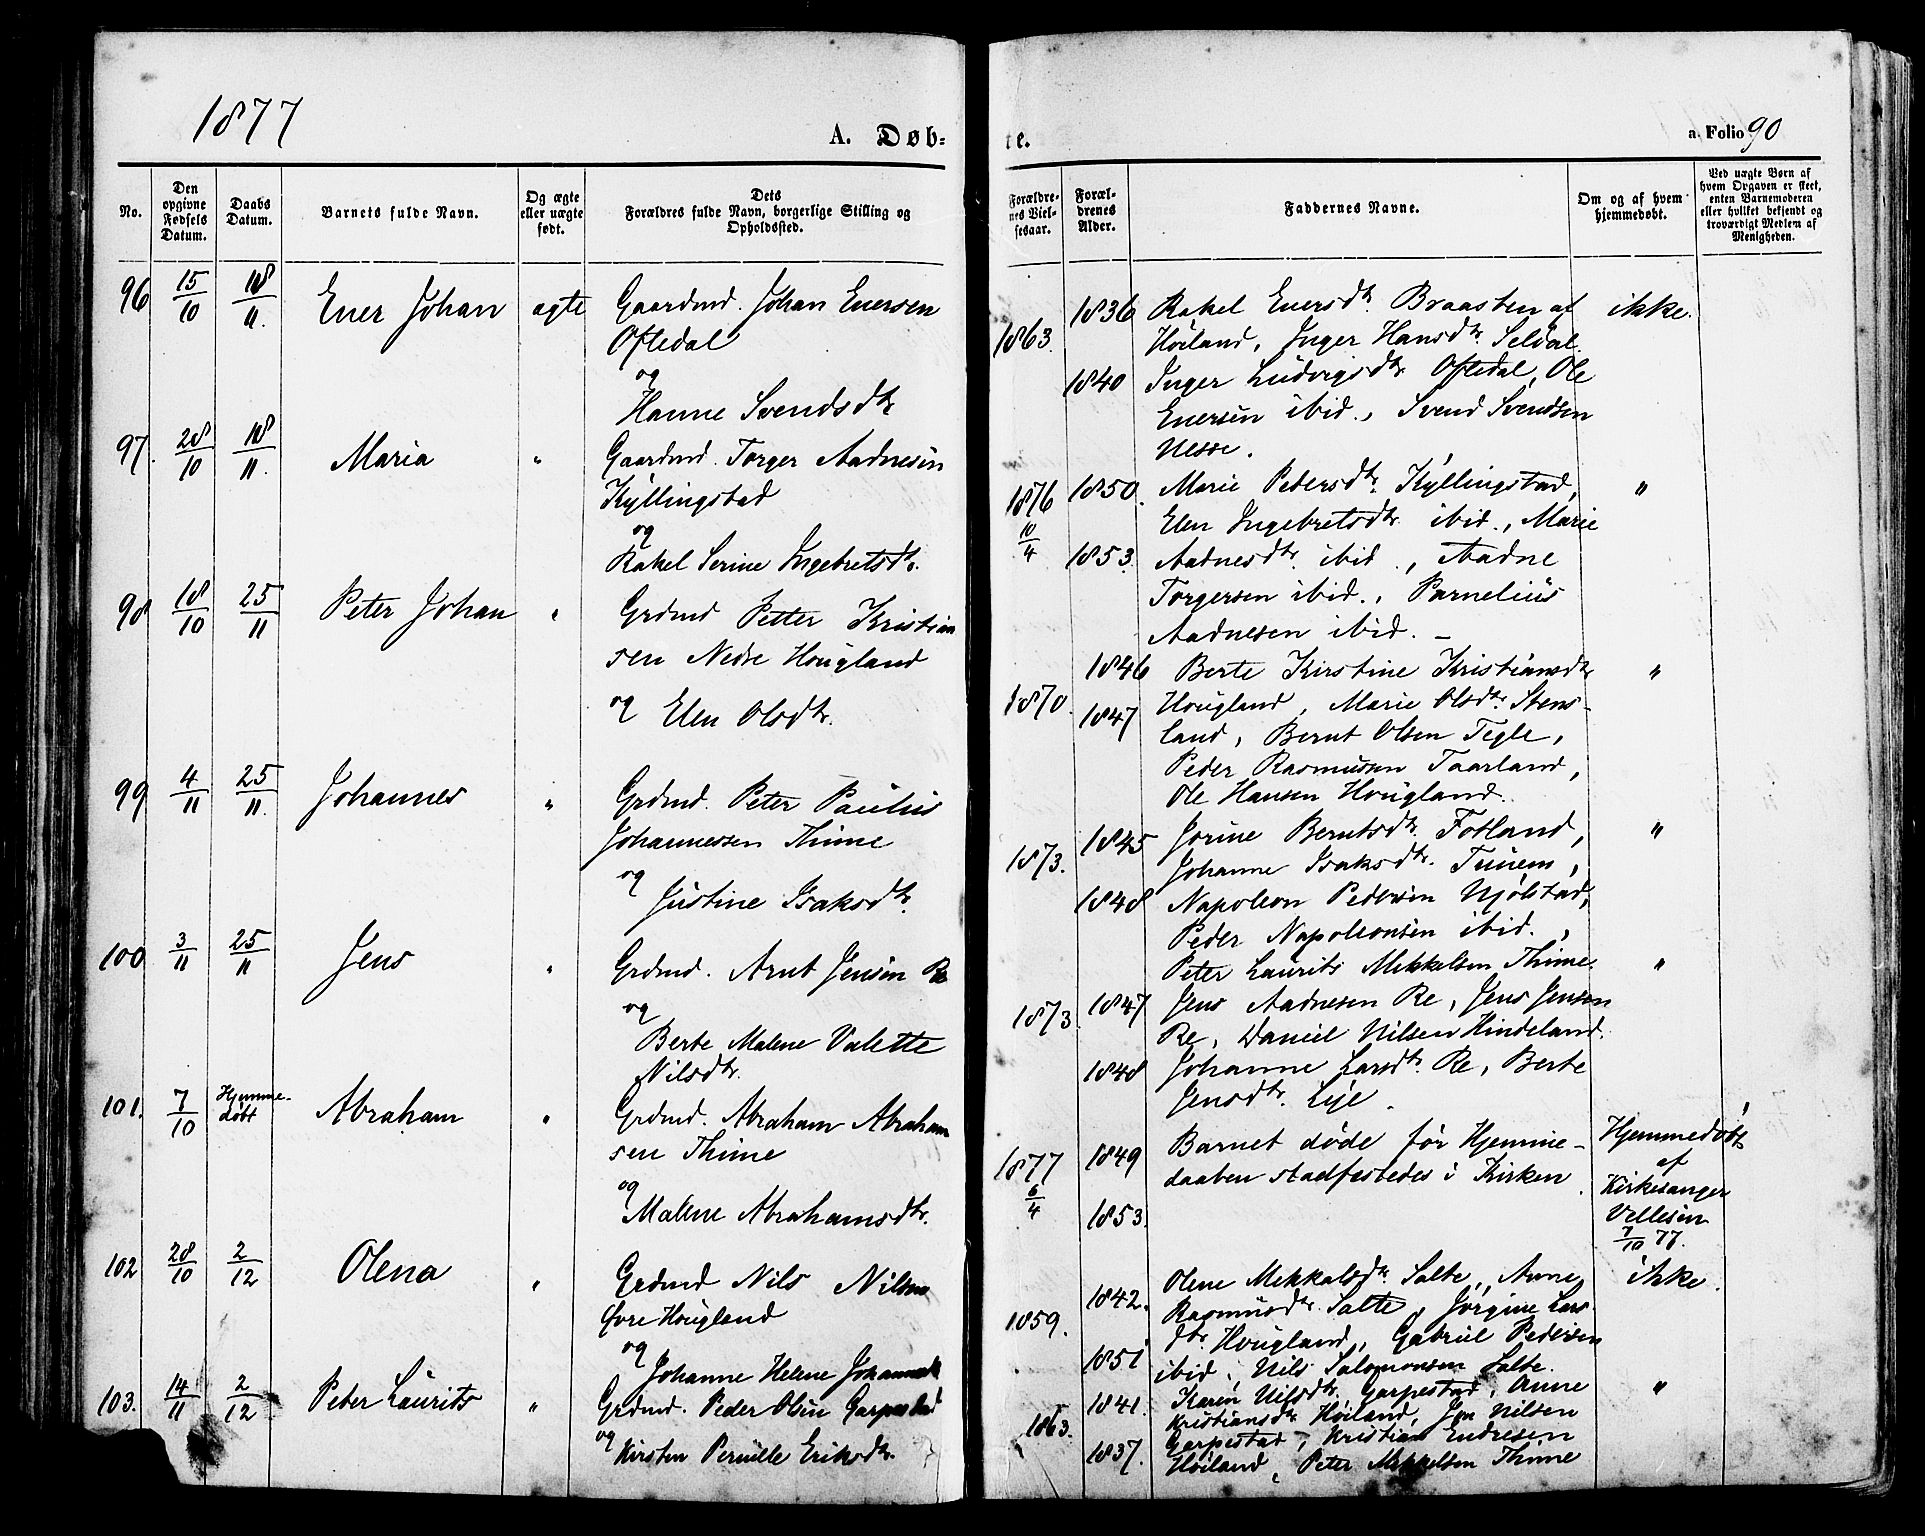 1877
A. Døb=
te.
a. Folio 90
No.
Den
opgivne
Fødsels
Datum.
Daabs
Datum.
Barnets fulde Navn.
Og ægte
eller uægte
født.
Dets
Forældres fulde Navn, borgerlige Stilling og
Opholdssted.
Forældre-
nes Viel-
sesaar.
Foræl-
drenes
Alder.
Faddernes Navne.
Om og af hvem
hjemmedøbt.
Ved uægte Børn af
hvem Opgaven er skeet,
enten Barnemoderen
eller hvilket bekjendt og
troværdigt Medlem af
Menigheden.
96 15/10 18/11. Ener Johan ægte Gaardmd. Johan Enersen
Oftedal
og
Hanne Svendsdtr.
1863. 1836 1840
Rakel Enersdtr. Braasten af
Høiland, Inger Hansdtr. Seldal.
Inger Ludvigsdtr Oftedal, Ole
Enersen ibid., Svend Svendsen
Nesse.
ikke.
97. 28/10 18/11. Maria " Gaardmd. Torger Aadnesen
Kyllingstad
og
Rakel Serine Ingebretsdtr.
1876 10/4 1850. 1853.
Marie Pedersdtr. Kyllingstad,
Elen Ingebretsdtr. ibid., Marie
Aadnesdtr. ibid., Aadne
Torgersen ibid., Parnelius
Aadnesen ibid. —
"
98 18/10 25/11 Peter Johan " Grdmd Petter Kristian
sen Nedre Hougland
og Elen Olsdtr.
1870. 1846 1847
Berte Kirstine Kristiansdtr
Hougland, Marie Olsdtr. Stens-
land, Bernt Olsen Tegle,
Peder Rasmussen Taarland,
Ole Hansen Hougland.
"
99 4/11 25/11. Johannes " Grdmd. Peter Paulus
Johannessen Thime
og
Justine Isaksdtr.
1873. 1845 1848
Jorine Berntsdtr. Fotland,
Johanne Isaksdtr. Tunem,
Napoleon Pedersen Njølstad,
Peder Napoleonsen ibid.,
Peter Laurits Mikkelsen Thime.
"
100 3/11 25/11 Jens " Grdmd. Arnt Jensen Re
og
Berte Malene Valette
Nilsdtr.
1873. 1847 1848
Jens Aadnesen Re, Jens Jensen
Re, Daniel Nilsen Hindeland.
Johanne Larsdtr. Re, Berte
Jensdtr. Lye.
"
101. 7/10 Hjemme-
døbt Abraham " Grdmd. Abraham Abraham
sen Thime
og
Malene Abrahamsdtr.
1877 6/4 1849 1853.
Barnet døde før Hjemme-
daaben stadfestedes i Kirken
Hjemmedøbt
af
Kirkesanger
Vellesen
7/10 77.
102 28/10 2/12 Olena " Grdmd Nils Nilsen
Øvre Hougland
og
Johanne Helene
1859. 1842. 1851
Olene Mikkalsdtr. Salte, Anne
Rasmusdtr. Salte, Jørgine Lars
dtr. Hougland, Gabriel Pedersen
ibid., Nils Salomonsen Salte.
ikke.
103. 14/11 2/12 Peter Laurits " Grdmd. Peder Olsen Garpestad
og
Kirsten Pernille Eriksdtr.
1863. 1841. 1837.
Karen Nilsdtr. Garpestad, Anne
Kristiansdtr. Høiland, Jon Nilsen
Garpestad, Kristian Endresen
Høiland, Peter Mikkelsen Thime
"